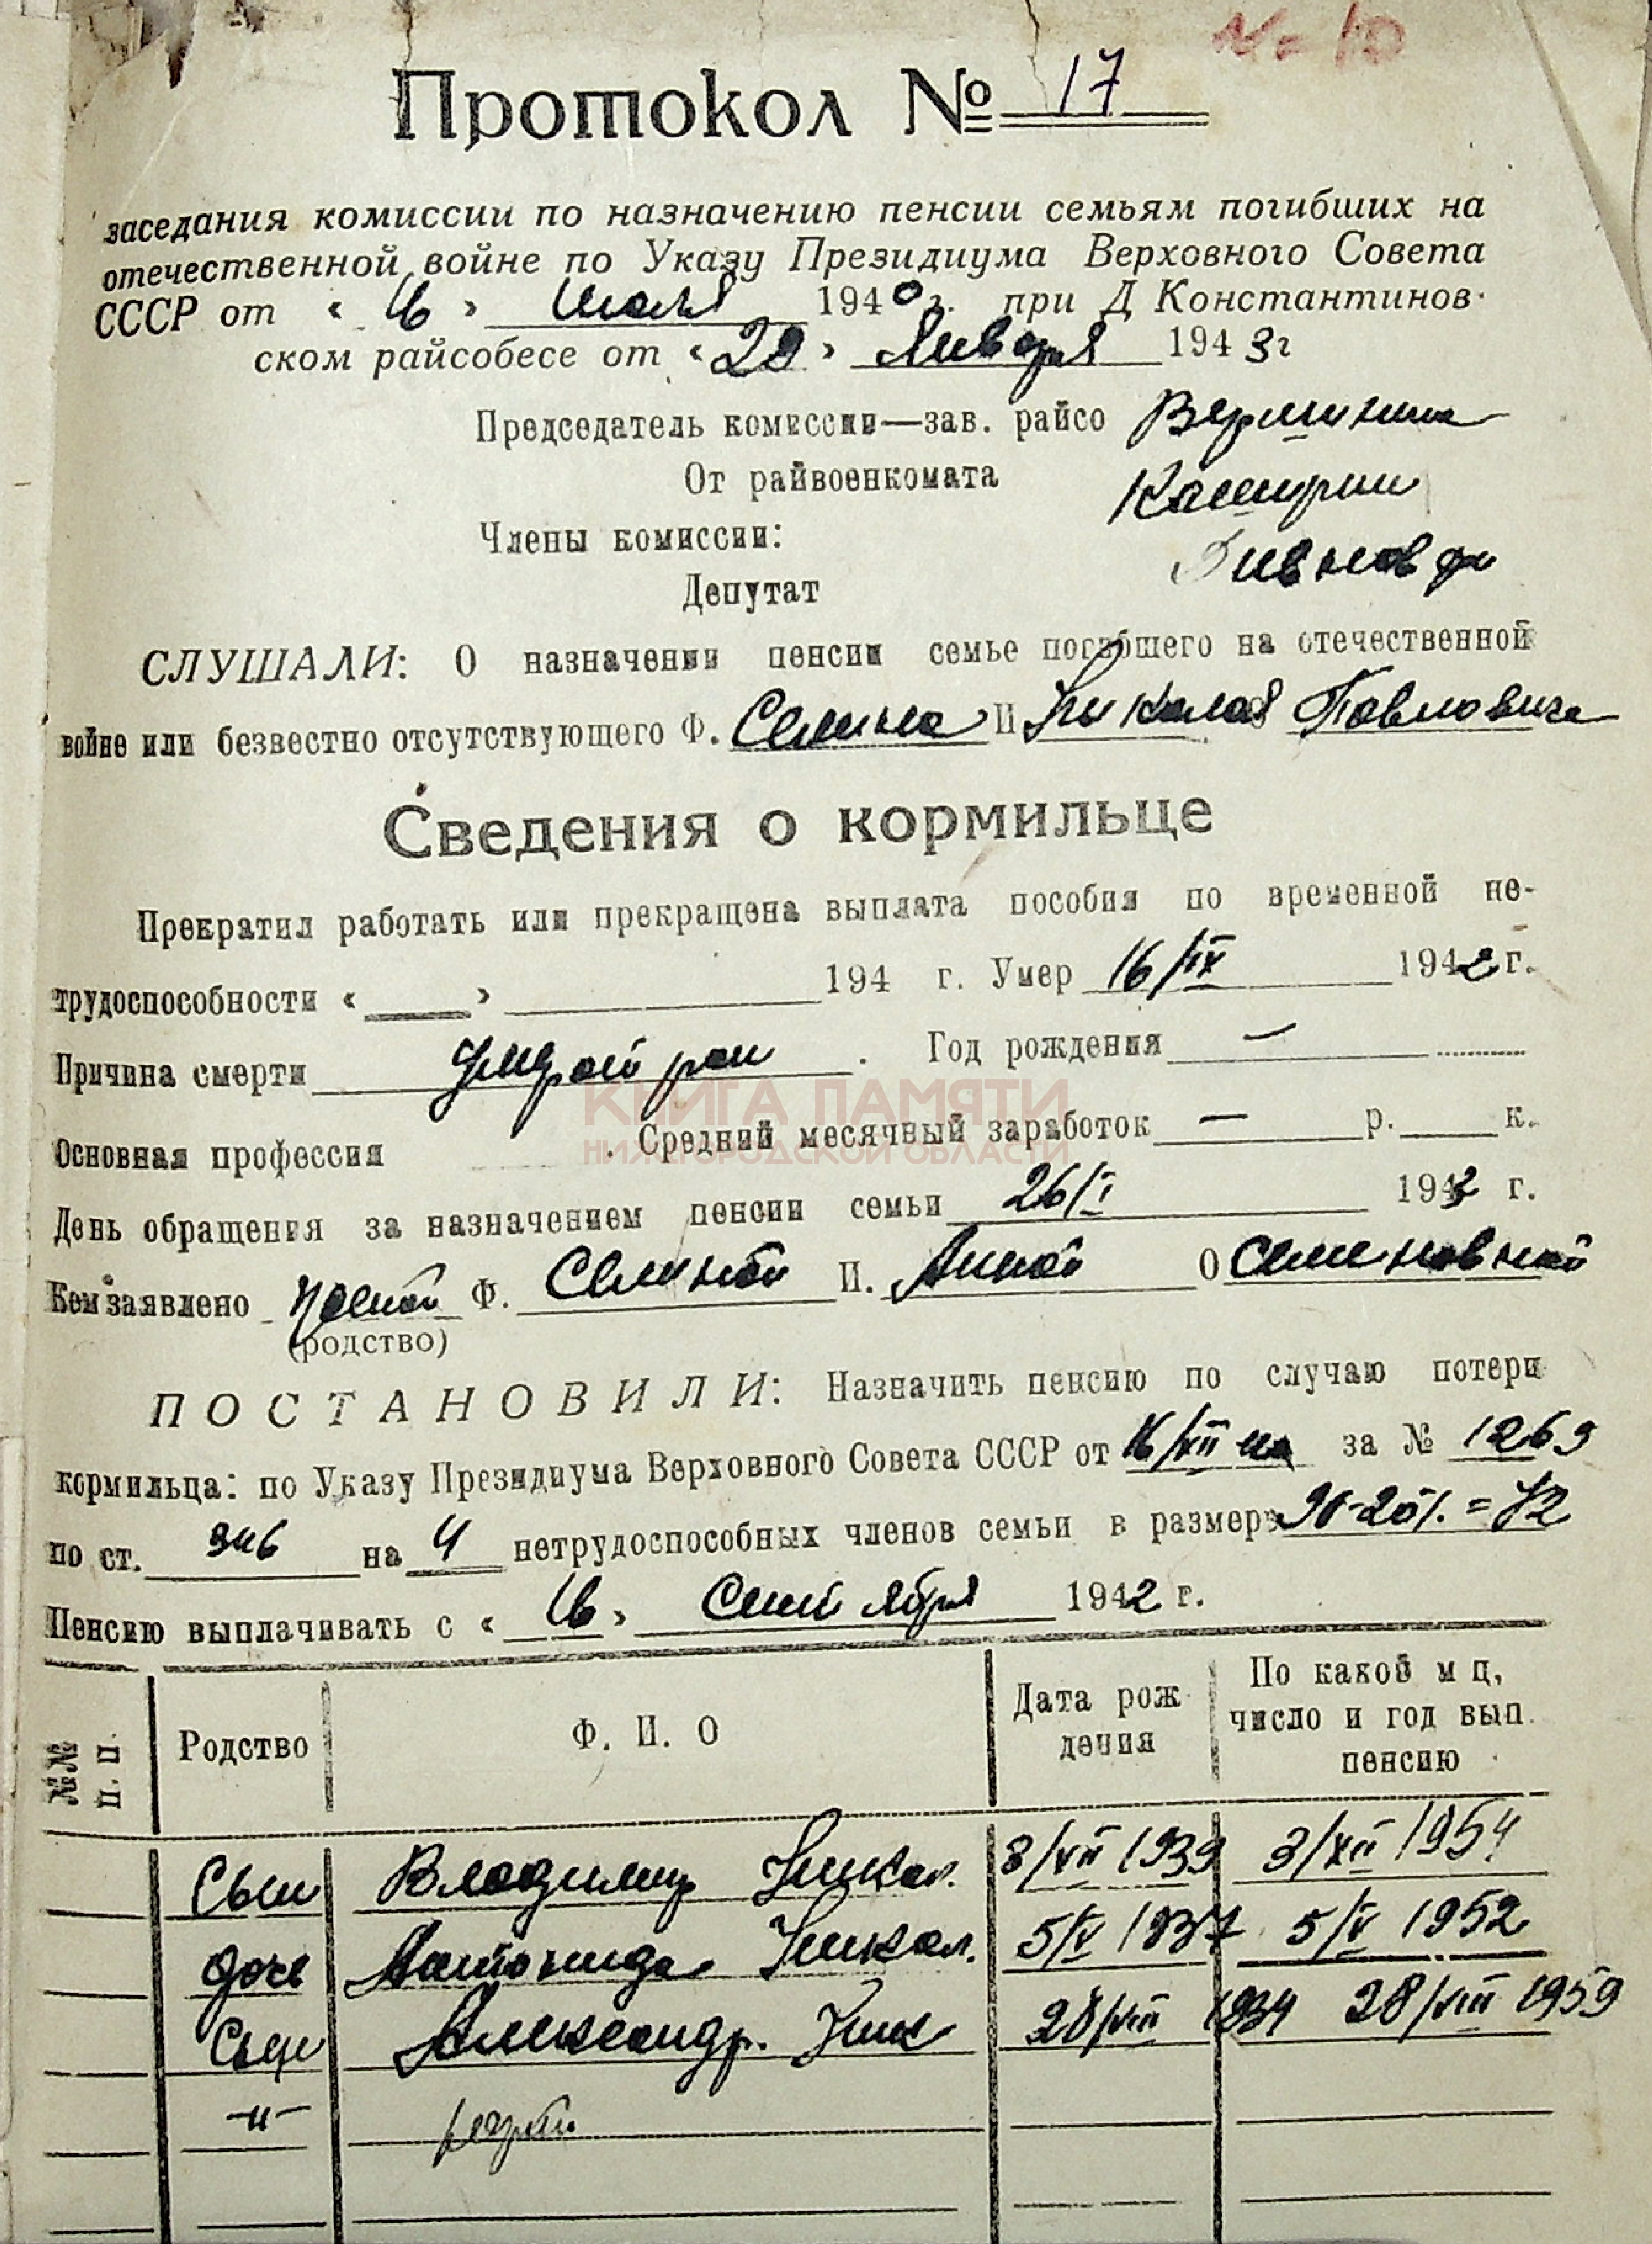 № 10
Протокол № 17
заседания комиссии по назначению пенсии семьям погибших на
отечественной войне по Указу Президиума Верховного Совета
СССР от « 16 » июля 1940 г. при Д Константинов-
ском райсобесе от «20» Января 1943 г
Председатель комиссии—зав. райсо Вершинина
От райвоенкомата Каширин
Члены комиссии:
Депутат
СЛУШАЛИ: О назначении пенсии семье погибшего на отечественной
войне или безвестно отсутствующего Ф. Селина И Николая Павловича
Сведения о кормильце
Прекратил работать или прекращена выплата пособия по временной не-
трудоспособности « » 194 г. Умер 16/IX 1942 г.
Причина смерти Умер от ран . Год рождения —
Основная профессия . Средний месячный заработок — р. к.
КНИГА ПАМЯТИ
НИЖЕГОРОДСКОЙ ОБЛАСТИ
День обращения за назначением пенсии семьи 26/I 1943 г.
Кем заявлено женой Ф. Селиной И. Анной О Семеновной
(родство)
ПОСТАНОВИЛИ: Назначить пенсию по случаю потери
кормильца: по Указу Президиума Верховного Совета СССР от 16/VII 40 за № 1269
по ст. 346 на 4 нетрудоспособных членов семьи в размере 90-20% = 72
Пенсию выплачивать с « 16 » Сентября 1942 г.
№№ п. п. Родство Ф. И. О Дата рож дения По какой м ц, число и год вып. пенсию
Сын Владимир Никол. 3/VII 1939 3/XII 1954
дочь Антонида Никол. 5/V 1937 5/V 1952
Сын Александр. Ник 28/VIII 1934 28/VIII 1959
-"-